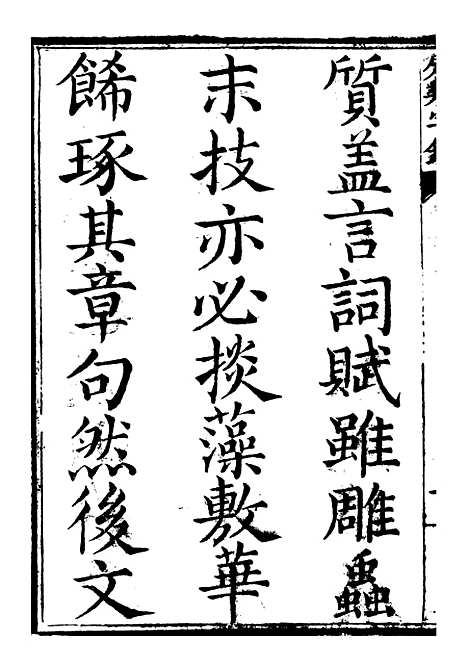 質盖言詞賦雖雕蟲
末技亦必掞藻敷華
餙琢其章句然後文